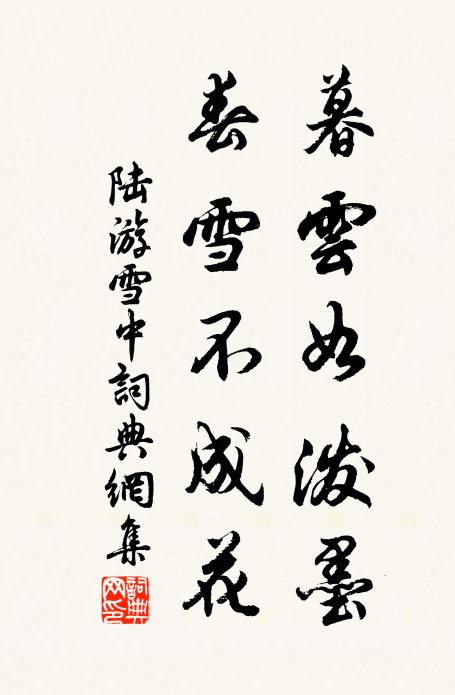 暮雲如潑墨
春雪不成花
陸游雪中詞典網集
詞典網印